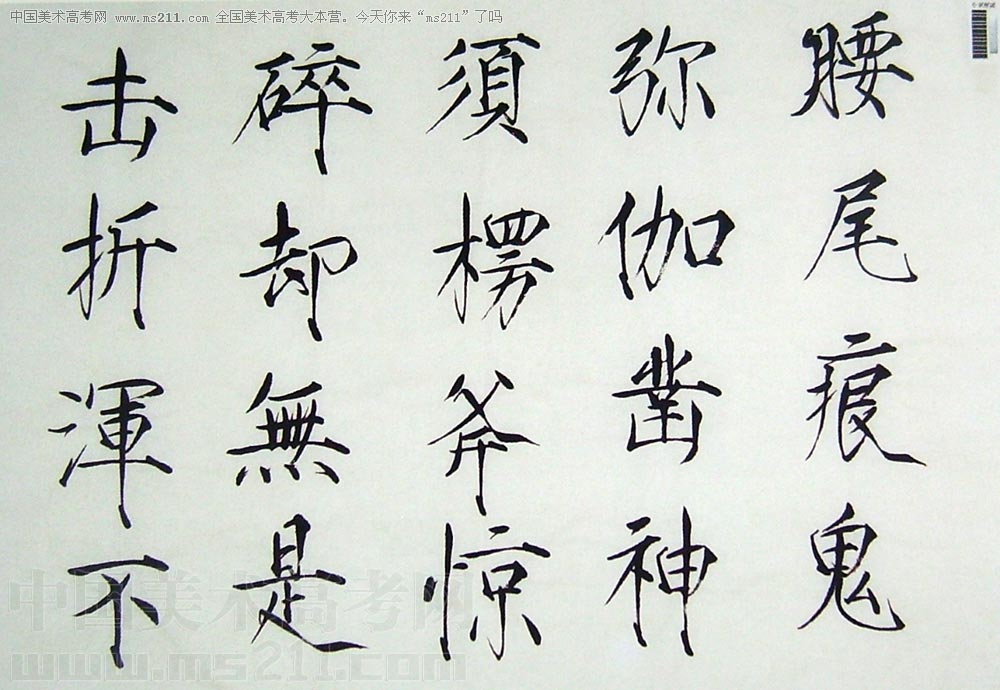 中国美术高考网 www.ms211.com 全国美术高考大本营。今天你来“ms211”了吗
腰尾痕鬼
弥伽凿神
須楞斧惊
碎却無是
击折渾不
中国美术高考网
www.ms211.com